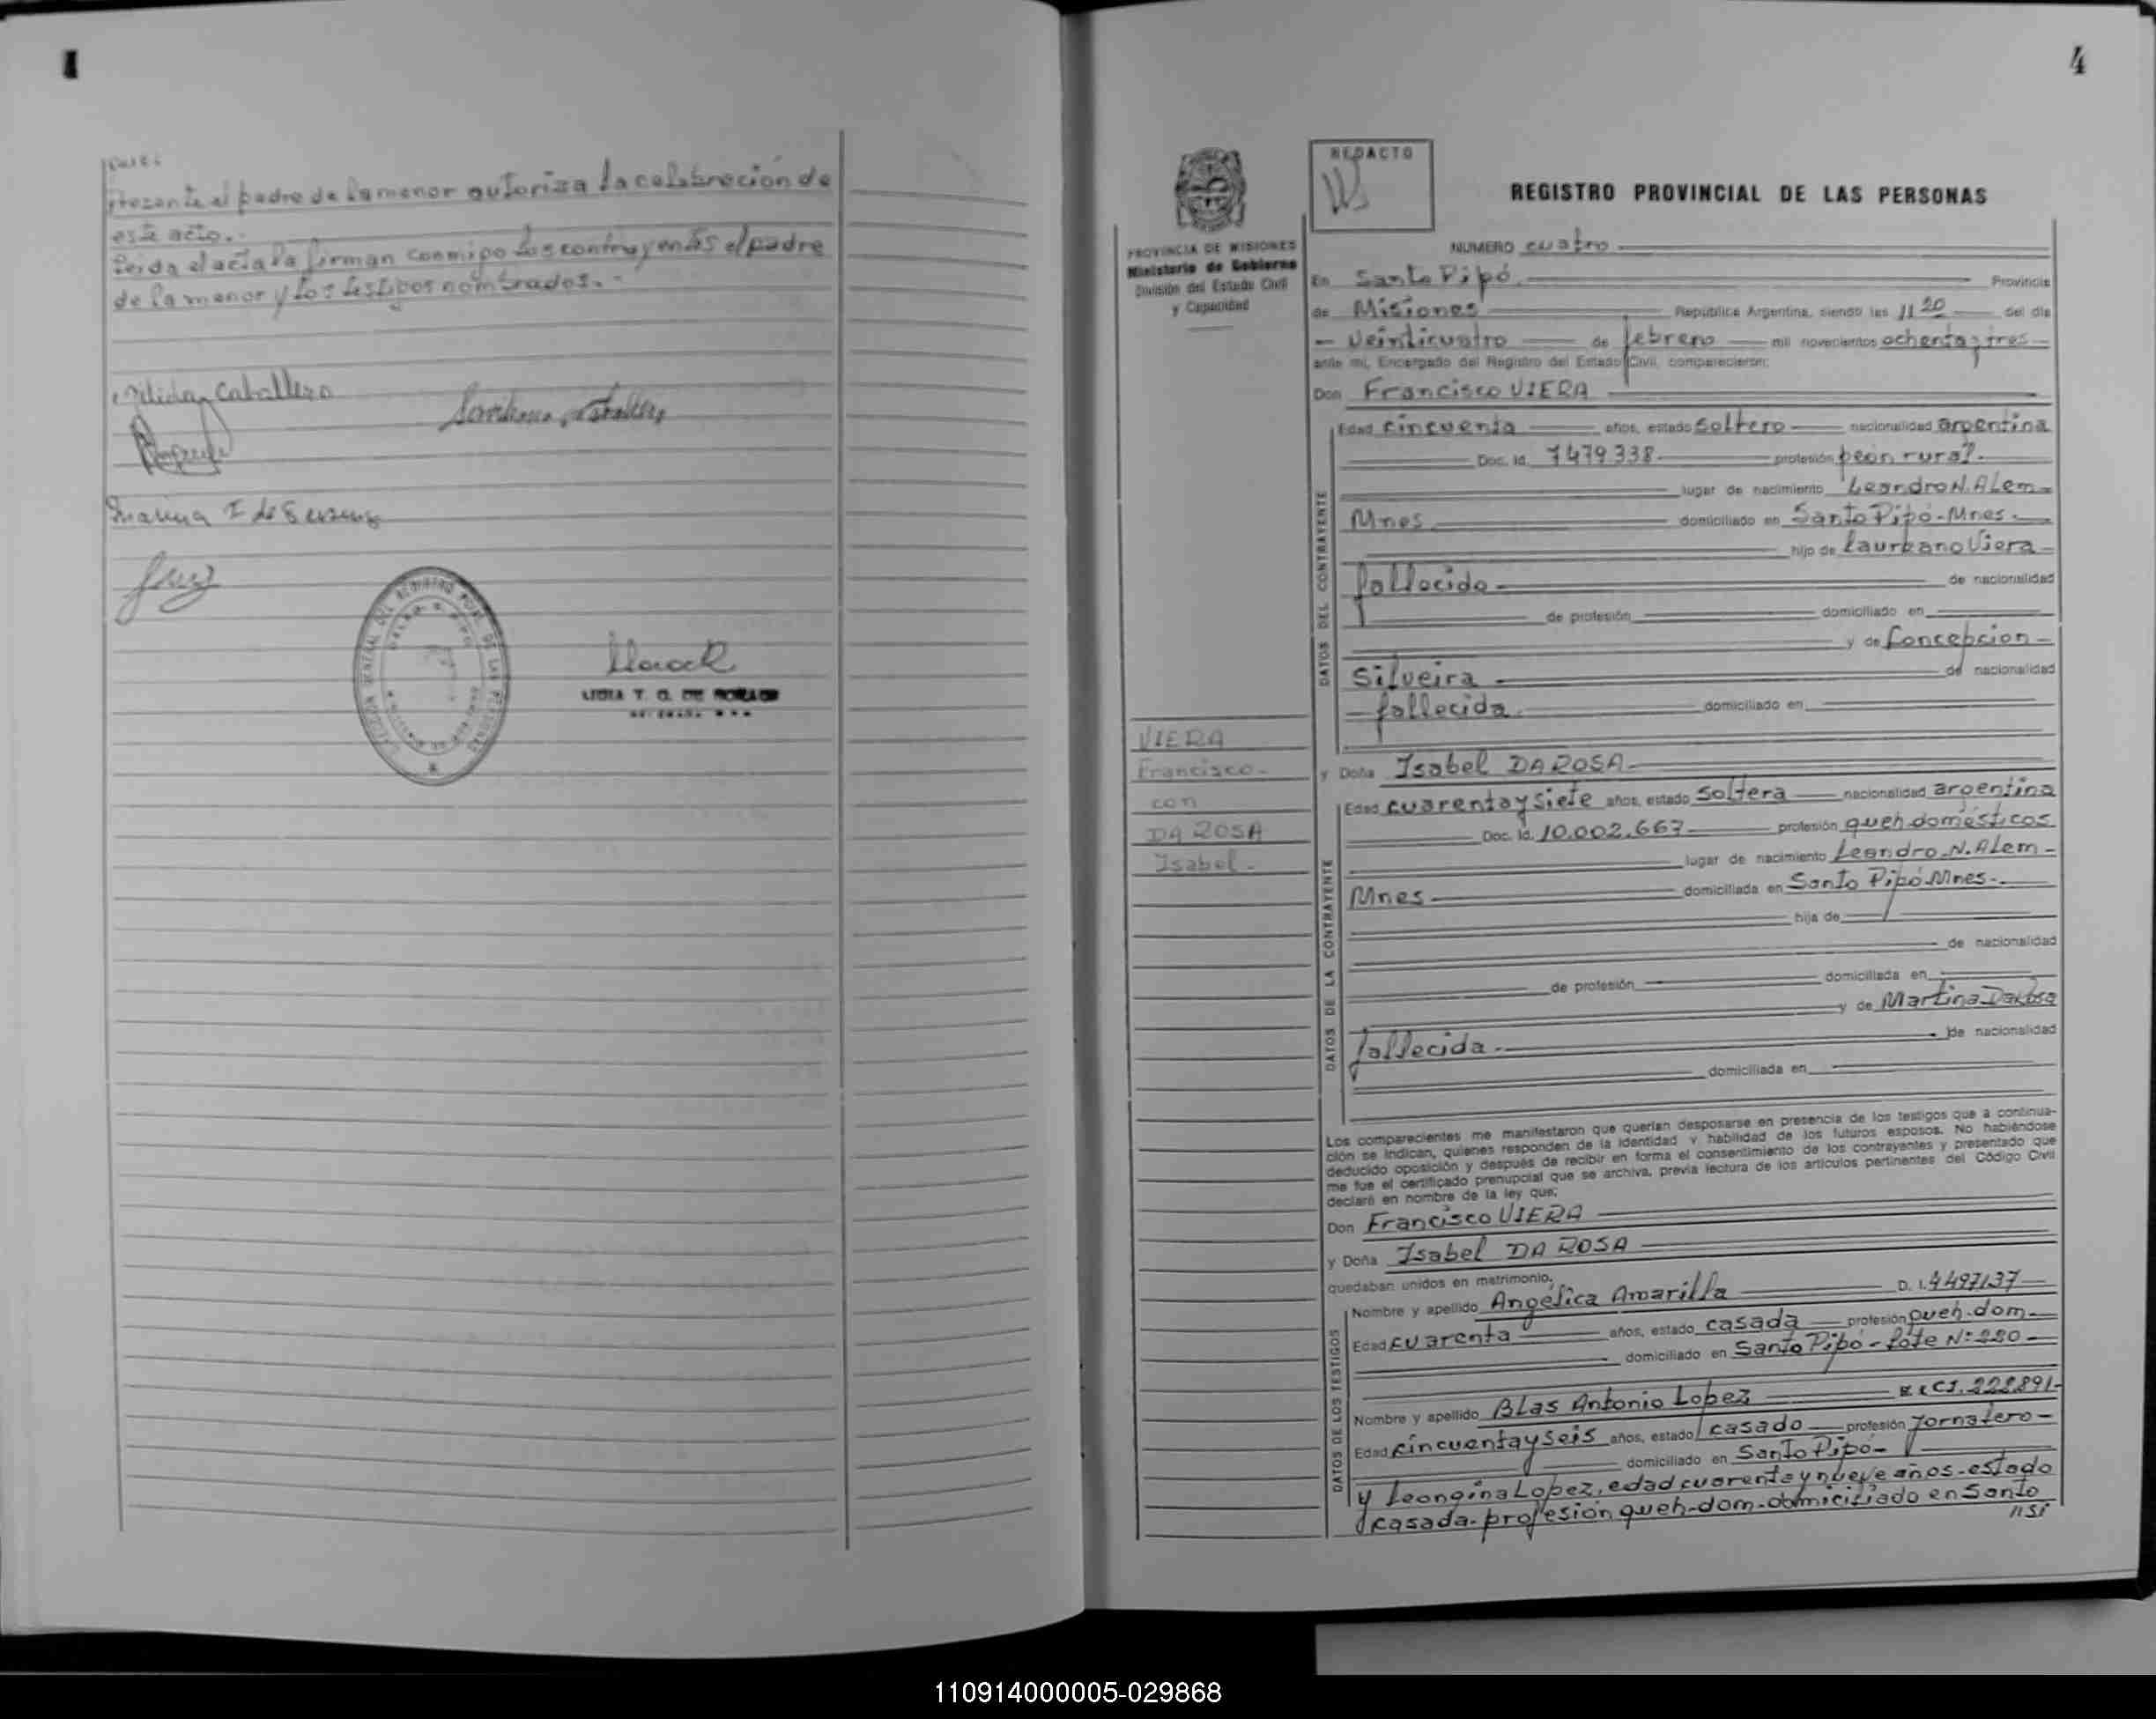 Presente el padre de la menor autoriza la celebración de
este acto.-
Leida el acta la firman conmigo los contrayentes el padre
de la menor y los testigos nombrados.-
Caballero
LIDIA T. G. DE
4
REDACTO
REGISTRO PROVINCIAL DE LAS PERSONAS
PROVINCIA DE MISIONES
Ministerio de Gobierno
División del Estado Civil
y Capacidad
NUMERO cuatro
En Santo Pipó. Provincia
de Misiones República Argentina, siendo las 11 20 del día
- Veinticuatro de febrero mil novecientos ochenta y tres
ante mí, Encargado del Registro del Estado Civil, comparecieron:
Don Francisco VIERA
DATOS DEL CONTRAYENTE
Edad cincuenta años, estado soltero nacionalidad argentina
Doc. Id. 7479.338 profesión peón rural.
lugar de nacimiento Leandro N. Alem-
Mnes domiciliado en Santo Pipó-Mnes.
hijo de Laureano Viera
fallecido - de nacionalidad
de profesión domiciliado en
y de Concepcion
Silveira - de nacionalidad
- fallecida. domiciliado en
VIERA
Francisco-
con
DA ROSA
Isabel-
y Doña Isabel DA ROSA-
DATOS DE LA CONTRAYENTE
Edad cuarenta y siete años, estado soltera nacionalidad argentina
Doc. Id. 10.002.667 profesión queh domésticos
lugar de nacimiento Leandro-N. Alem-
Mnes domiciliada en Santo Pipó Mnes-
hija de
de nacionalidad
de profesión domiciliada en
y de Martina Da Rosa
fallecida. de nacionalidad
domiciliada en
Los comparecientes me manifestaron que querían desposarse en presencia de los testigos que a continua-
ción se indican, quienes responden de la identidad y habilidad de los futuros esposos. No habiéndose
deducido oposición y después de recibir en forma el consentimiento de los contrayentes y presentado que
me fue el certificado prenupcial que se archiva, previa lectura de los artículos pertinentes del Código Civil
declaré en nombre de la ley que:
Don Francisco VIERA
y Doña Isabel DA ROSA
quedaban unidos en matrimonio.
DATOS DE LOS TESTIGOS
Nombre y apellido Angélica Amarilla D. I. 4497137
Edad cuarenta años, estado casada profesión queh-dom-
domiciliado en Santo Pipó-Lote Nº 280-
Nombre y apellido Blas Antonio Lopez CI. 228891-
Edad cincuenta y seis años, estado casado profesión Jornalero-
domiciliado en Santo Pipó-
y Leongina Lopez, edad cuarenta y nueve años-estado
casada-profesión queh-dom-domiciliado en Santo
//si
110914000005-029868